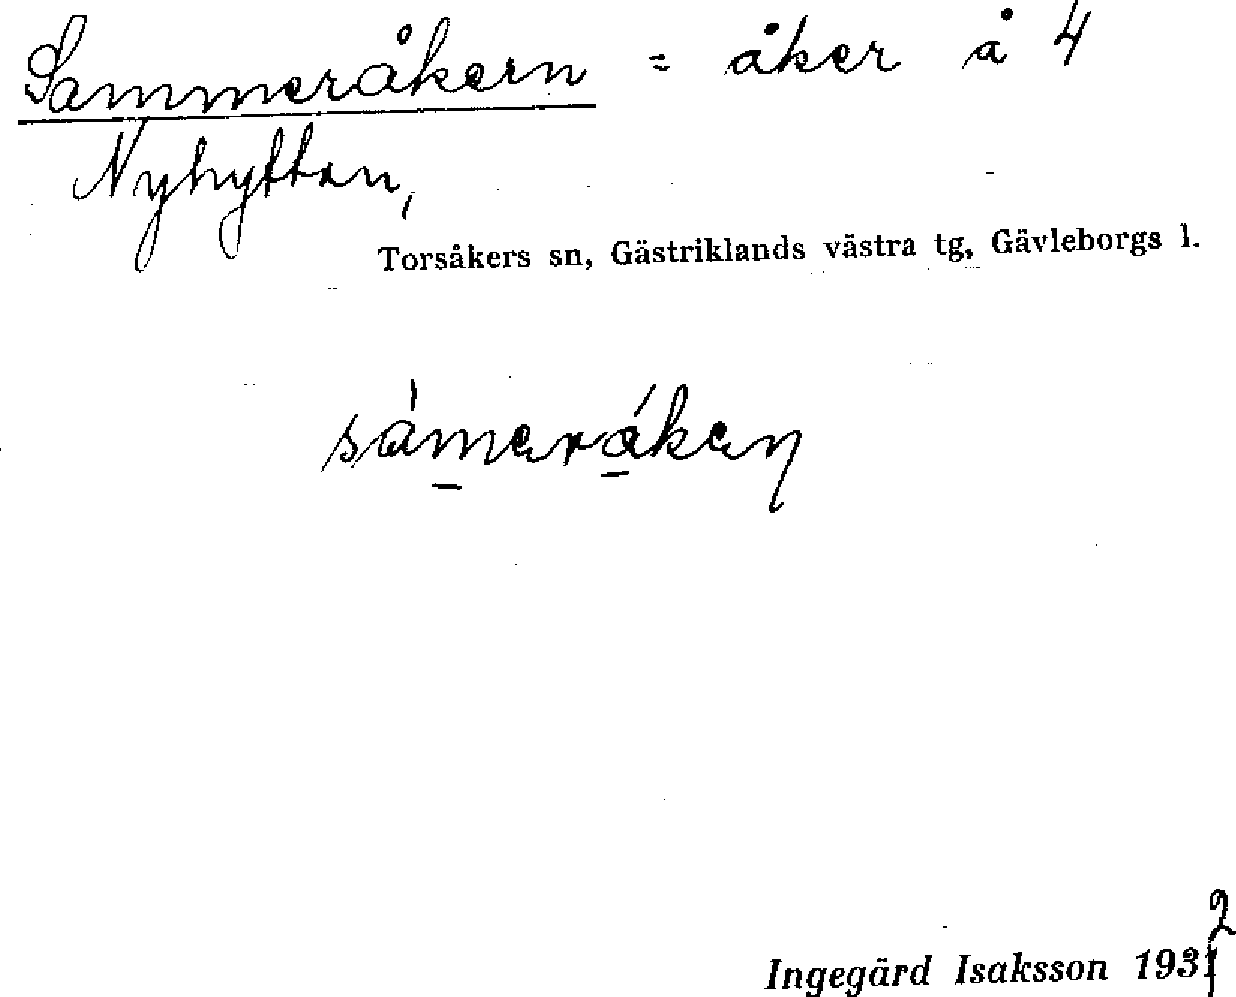 Sammeråkern = åker å 4
Nyhyttan,
Torsåkers sn, Gästriklands västra tg, Gävleborgs l.
sámeråkaŋ
2
Ingegärd Isaksson 1931